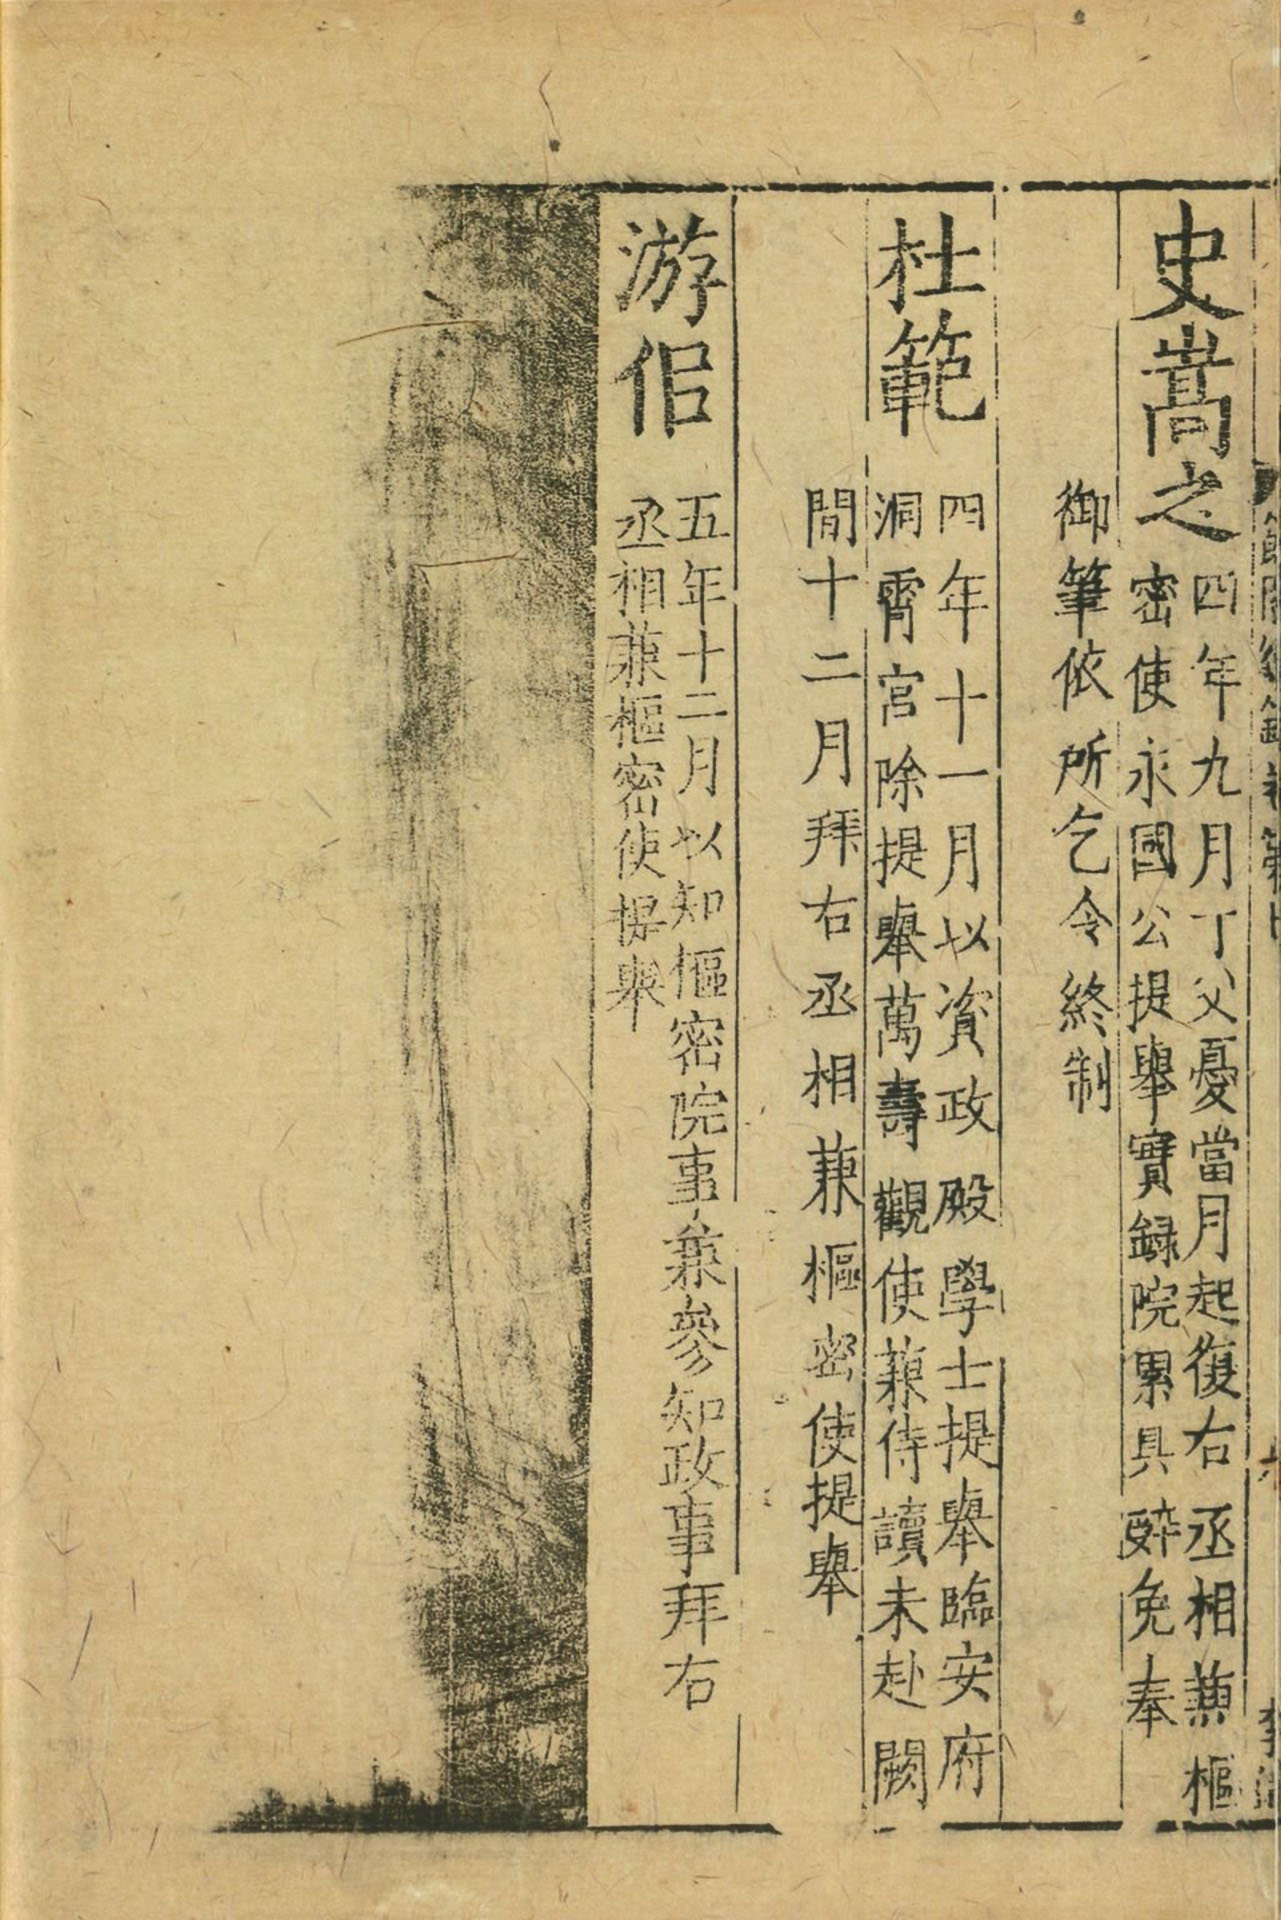 史嵩之
四年九月丁父憂當月起復右丞相兼樞
密使永國公提舉實録院累具辤免奉
御筆依所乞令終制
杜範
四年十一月以資政殿學士提舉臨安府
洞霄宮除提舉萬壽觀使兼侍讀未赴闕
間十二月拜右丞相兼樞密使提舉
游佀
五年十二月以知樞密院事兼參知政事拜右
丞相兼樞密使提舉